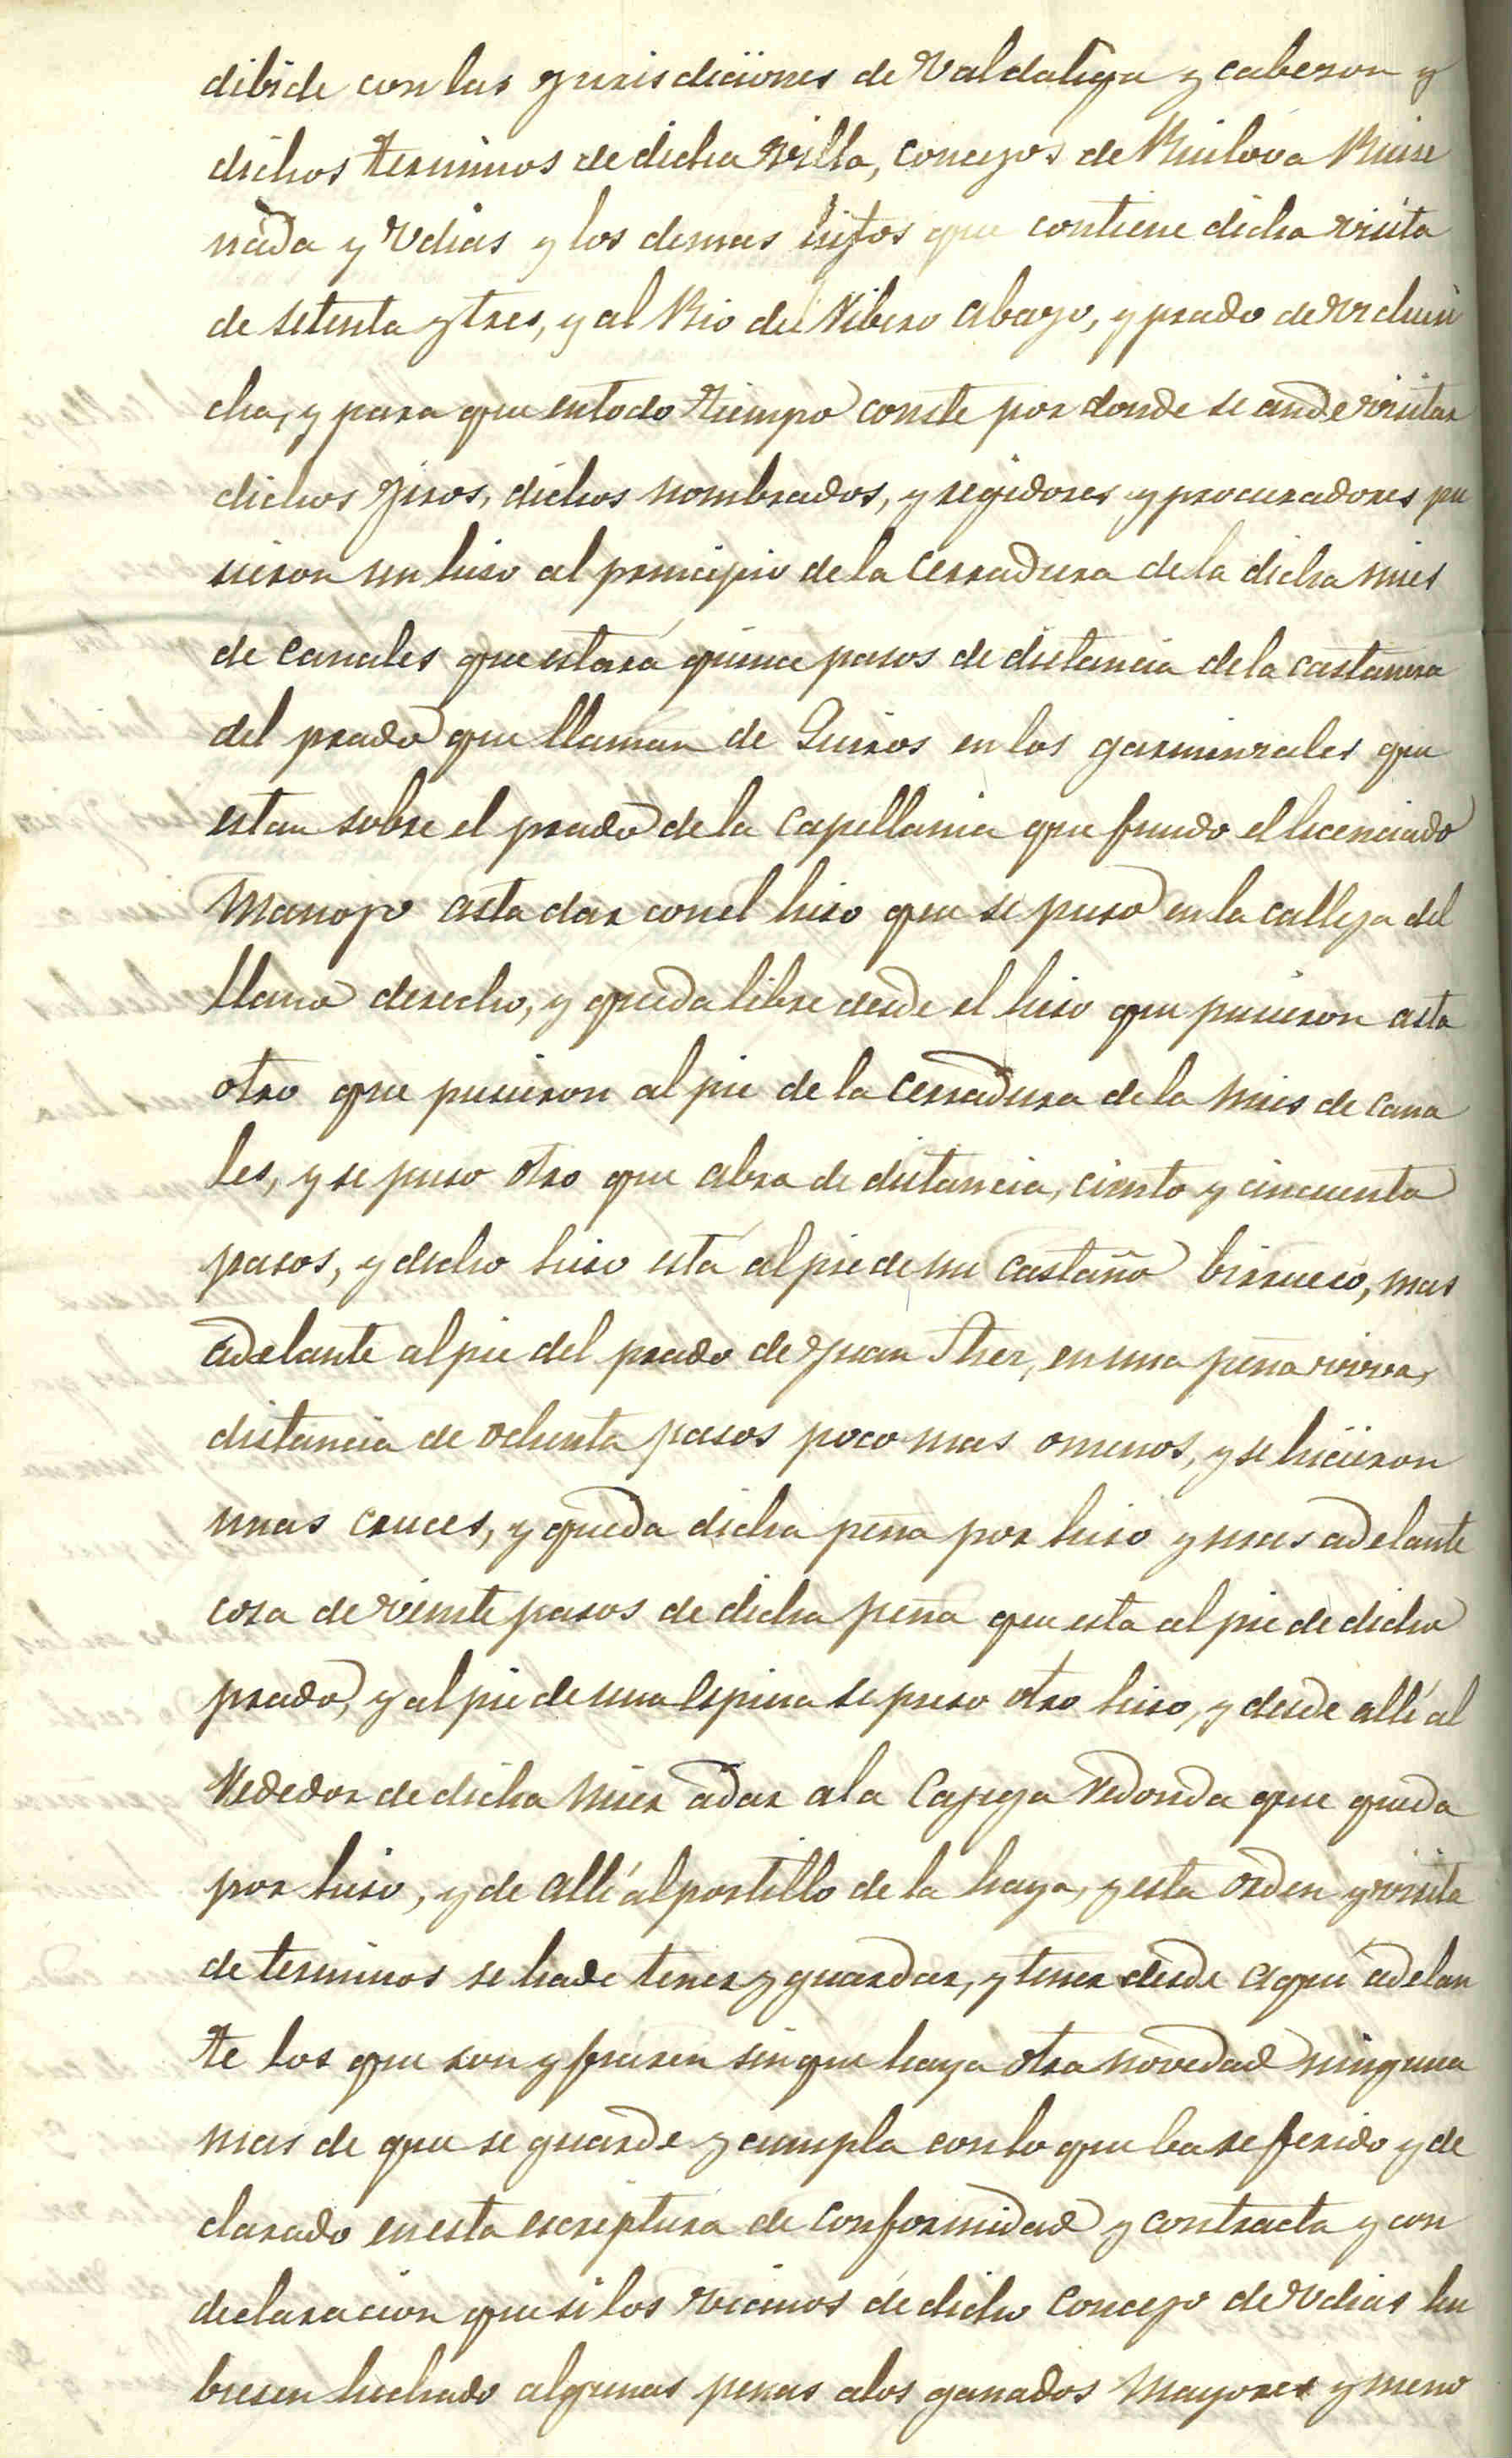 dibide con las jurisdiciones de Valdaliga y cabezon y
dichos terminos de dicha Villa, concejos de Ruilova Ruise
nada y Vdias y los demas hitos que contiene dicha visita
de setenta y tres, y al Rio del Ribero abajo, y prado de
cha, y para que entodo tiempo conste por donde se ande visitar
dichos jisos, dichos nombrados, y regidores y procuradores pu
sieron un hiso al principio de la Cerradura de la dicha mies
de canales que estará quince pasos de distancia de la castañera
del prado que llaman de Quiros en los garminzales que
estan sobre el prado de la capellania que fundo el licenciado
Manojo asta dar con el hiso que se puso en la calleja del
llano derecho, y queda libre desde el hiso que pusieron asta
otro que pusieron al pie de la Cerradura de la Mies de cana
les, y se puso otro que abra de distancia, ciento y cincuenta
pasos, y dicho hiso está al pie de un castaño birrueco, mas
adelante al pie del prado de Juan Frez, en una peña viva,
distancia de ochenta pasos poco mas omenos, y se hicieron
unas cruces, y queda dicha peña por hiso y mas adelante
cosa de veinte pasos de dicha peña que esta al pie de dicho
prado, y al pie de una Espina se puso otro hiso, y desde allí al
Rededor de dicha Mies adar ala Cajiga Redonda que queda
por hiso, y de allí al portillo de la haya, y esta orden y visita
de terminos se hade tener y guardar, y tener desde aquí adelan
te los que son y fueren sin que haya otra novedad ninguna
mas de que se guarde y cumpla con lo que ba referido y de
clarado en esta escriptura de conformidad y contracta y con
declaracion que si los vecinos de dicho concejo de Vdias hu
biesen hechado algunas penas alos ganados Mayores y meno